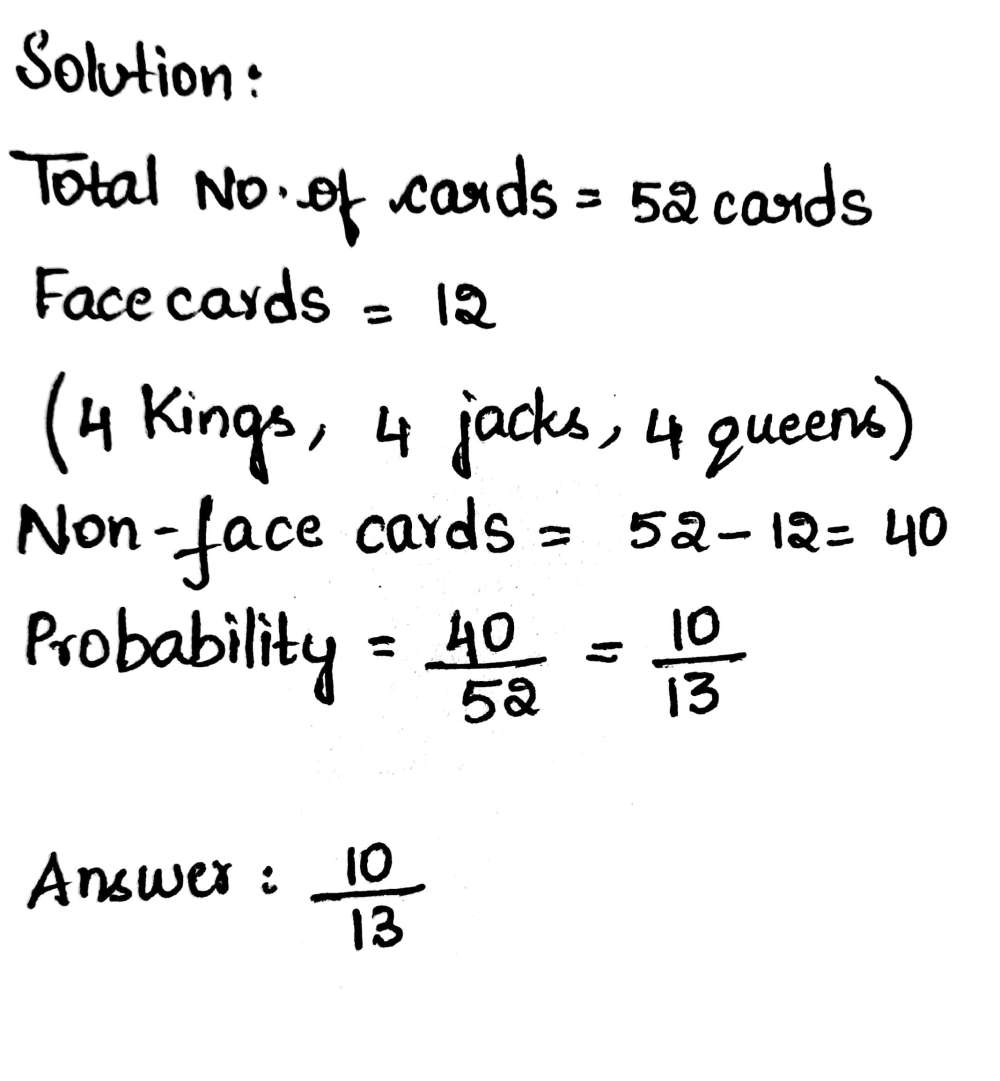 Solution:
Total No. of cards = 52 cards
Face cards = 12
(4 Kings, 4 jacks, 4 queens)
Non-face cards = 52 - 12 = 40
Probability = 40/52 = 10/13
Answer: 10/13